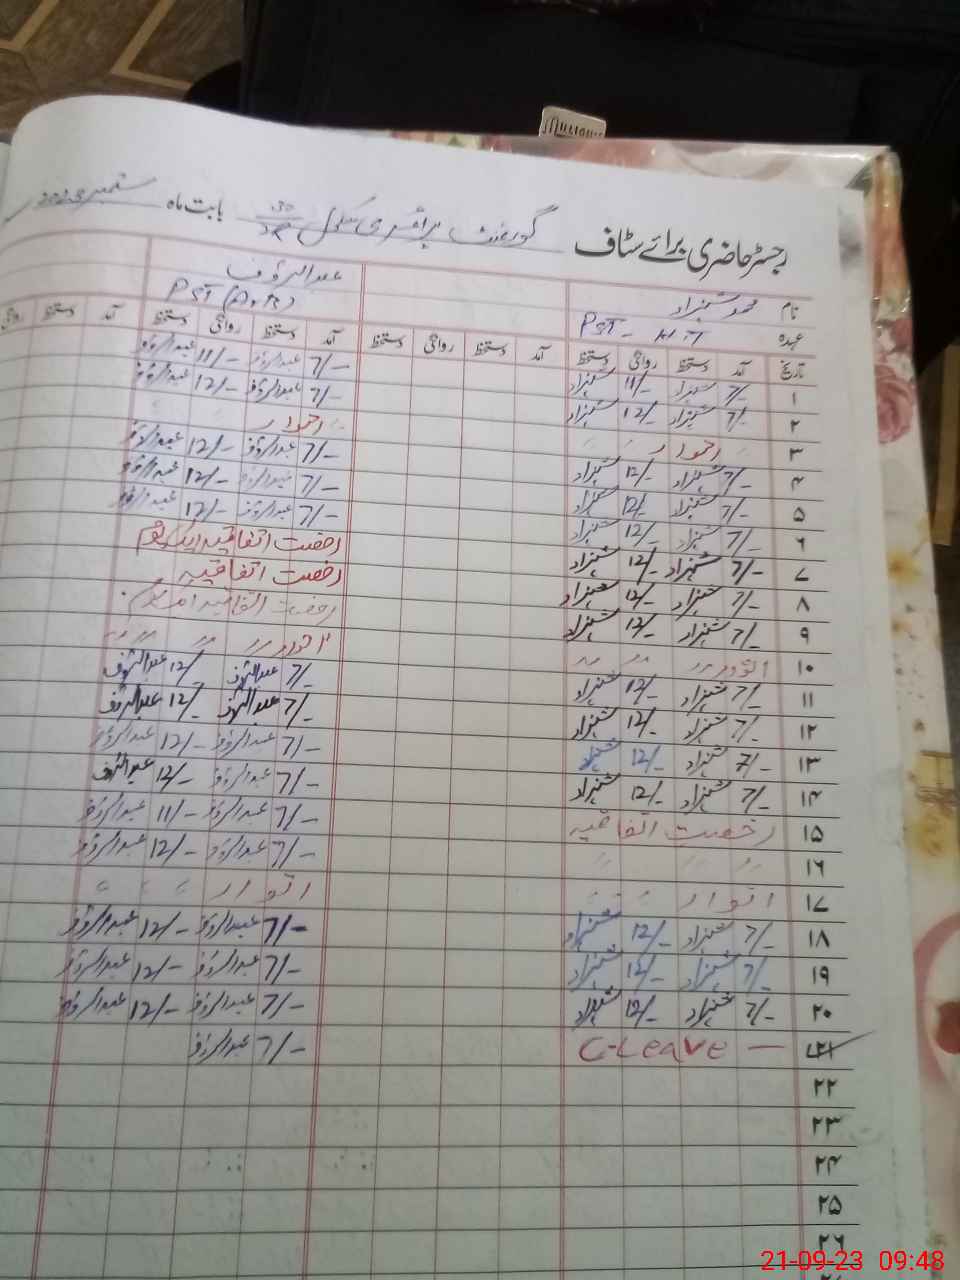 رجسٹر حاضری برائے سٹاف گورنمنٹ پرائمری سکول بابت ماہ ستمبر 2023
نام محمد شہزاد عبدالرؤف
عہدہ PST - H T PST
تاریخ آمد دستخط روانگی دستخط آمد دستخط روانگی دستخط آمد دستخط روانگی دستخط آمد دستخط روانگی
۱ 7/- شہزاد 11/- شہزاد 7/- عبدالرؤف 11/- عبدالرؤف
۲ 7/- شہزاد 12/- شہزاد 7/- عبدالرؤف 12/- عبدالرؤف
۳ اتوار اتوار
۴ 7/- شہزاد 12/- شہزاد 7/- عبدالرؤف 12/- عبدالرؤف
۵ 7/- شہزاد 12/- شہزاد 7/- عبدالرؤف 12/- عبدالرؤف
۶ 7/- شہزاد 12/- شہزاد 7/- عبدالرؤف 12/- عبدالرؤف
۷ 7/- شہزاد 12/- شہزاد رخصت اتفاقیہ ایک یوم
۸ 7/- شہزاد 12/- شہزاد رخصت اتفاقیہ
۹ 7/- شہزاد 12/- شہزاد رخصت اتفاقیہ ایک یوم
۱۰ اتوار اتوار
۱۱ 7/- شہزاد 12/- شہزاد 7/- عبدالرؤف 12/- عبدالرؤف
۱۲ 7/- شہزاد 12/- شہزاد 7/- عبدالرؤف 12/- عبدالرؤف
۱۳ 7/- شہزاد 12/- شہزاد 7/- عبدالرؤف 12/- عبدالرؤف
۱۴ 7/- شہزاد 12/- شہزاد 7/- عبدالرؤف 12/- عبدالرؤف
۱۵ رخصت اتفاقیہ 7/- عبدالرؤف 11/- عبدالرؤف
۱۶ 7/- عبدالرؤف 12/- عبدالرؤف
۱۷ اتوار اتوار
۱۸ 7/- شہزاد 12/- شہزاد 7/- عبدالرؤف 12/- عبدالرؤف
۱۹ 7/- شہزاد 12/- شہزاد 7/- عبدالرؤف 12/- عبدالرؤف
۲۰ 7/- شہزاد 12/- شہزاد 7/- عبدالرؤف 12/- عبدالرؤف
۲۱ C-Leave 7/- عبدالرؤف
۲۲
۲۳
۲۴
۲۵
۲۶
21-09-23 09:48